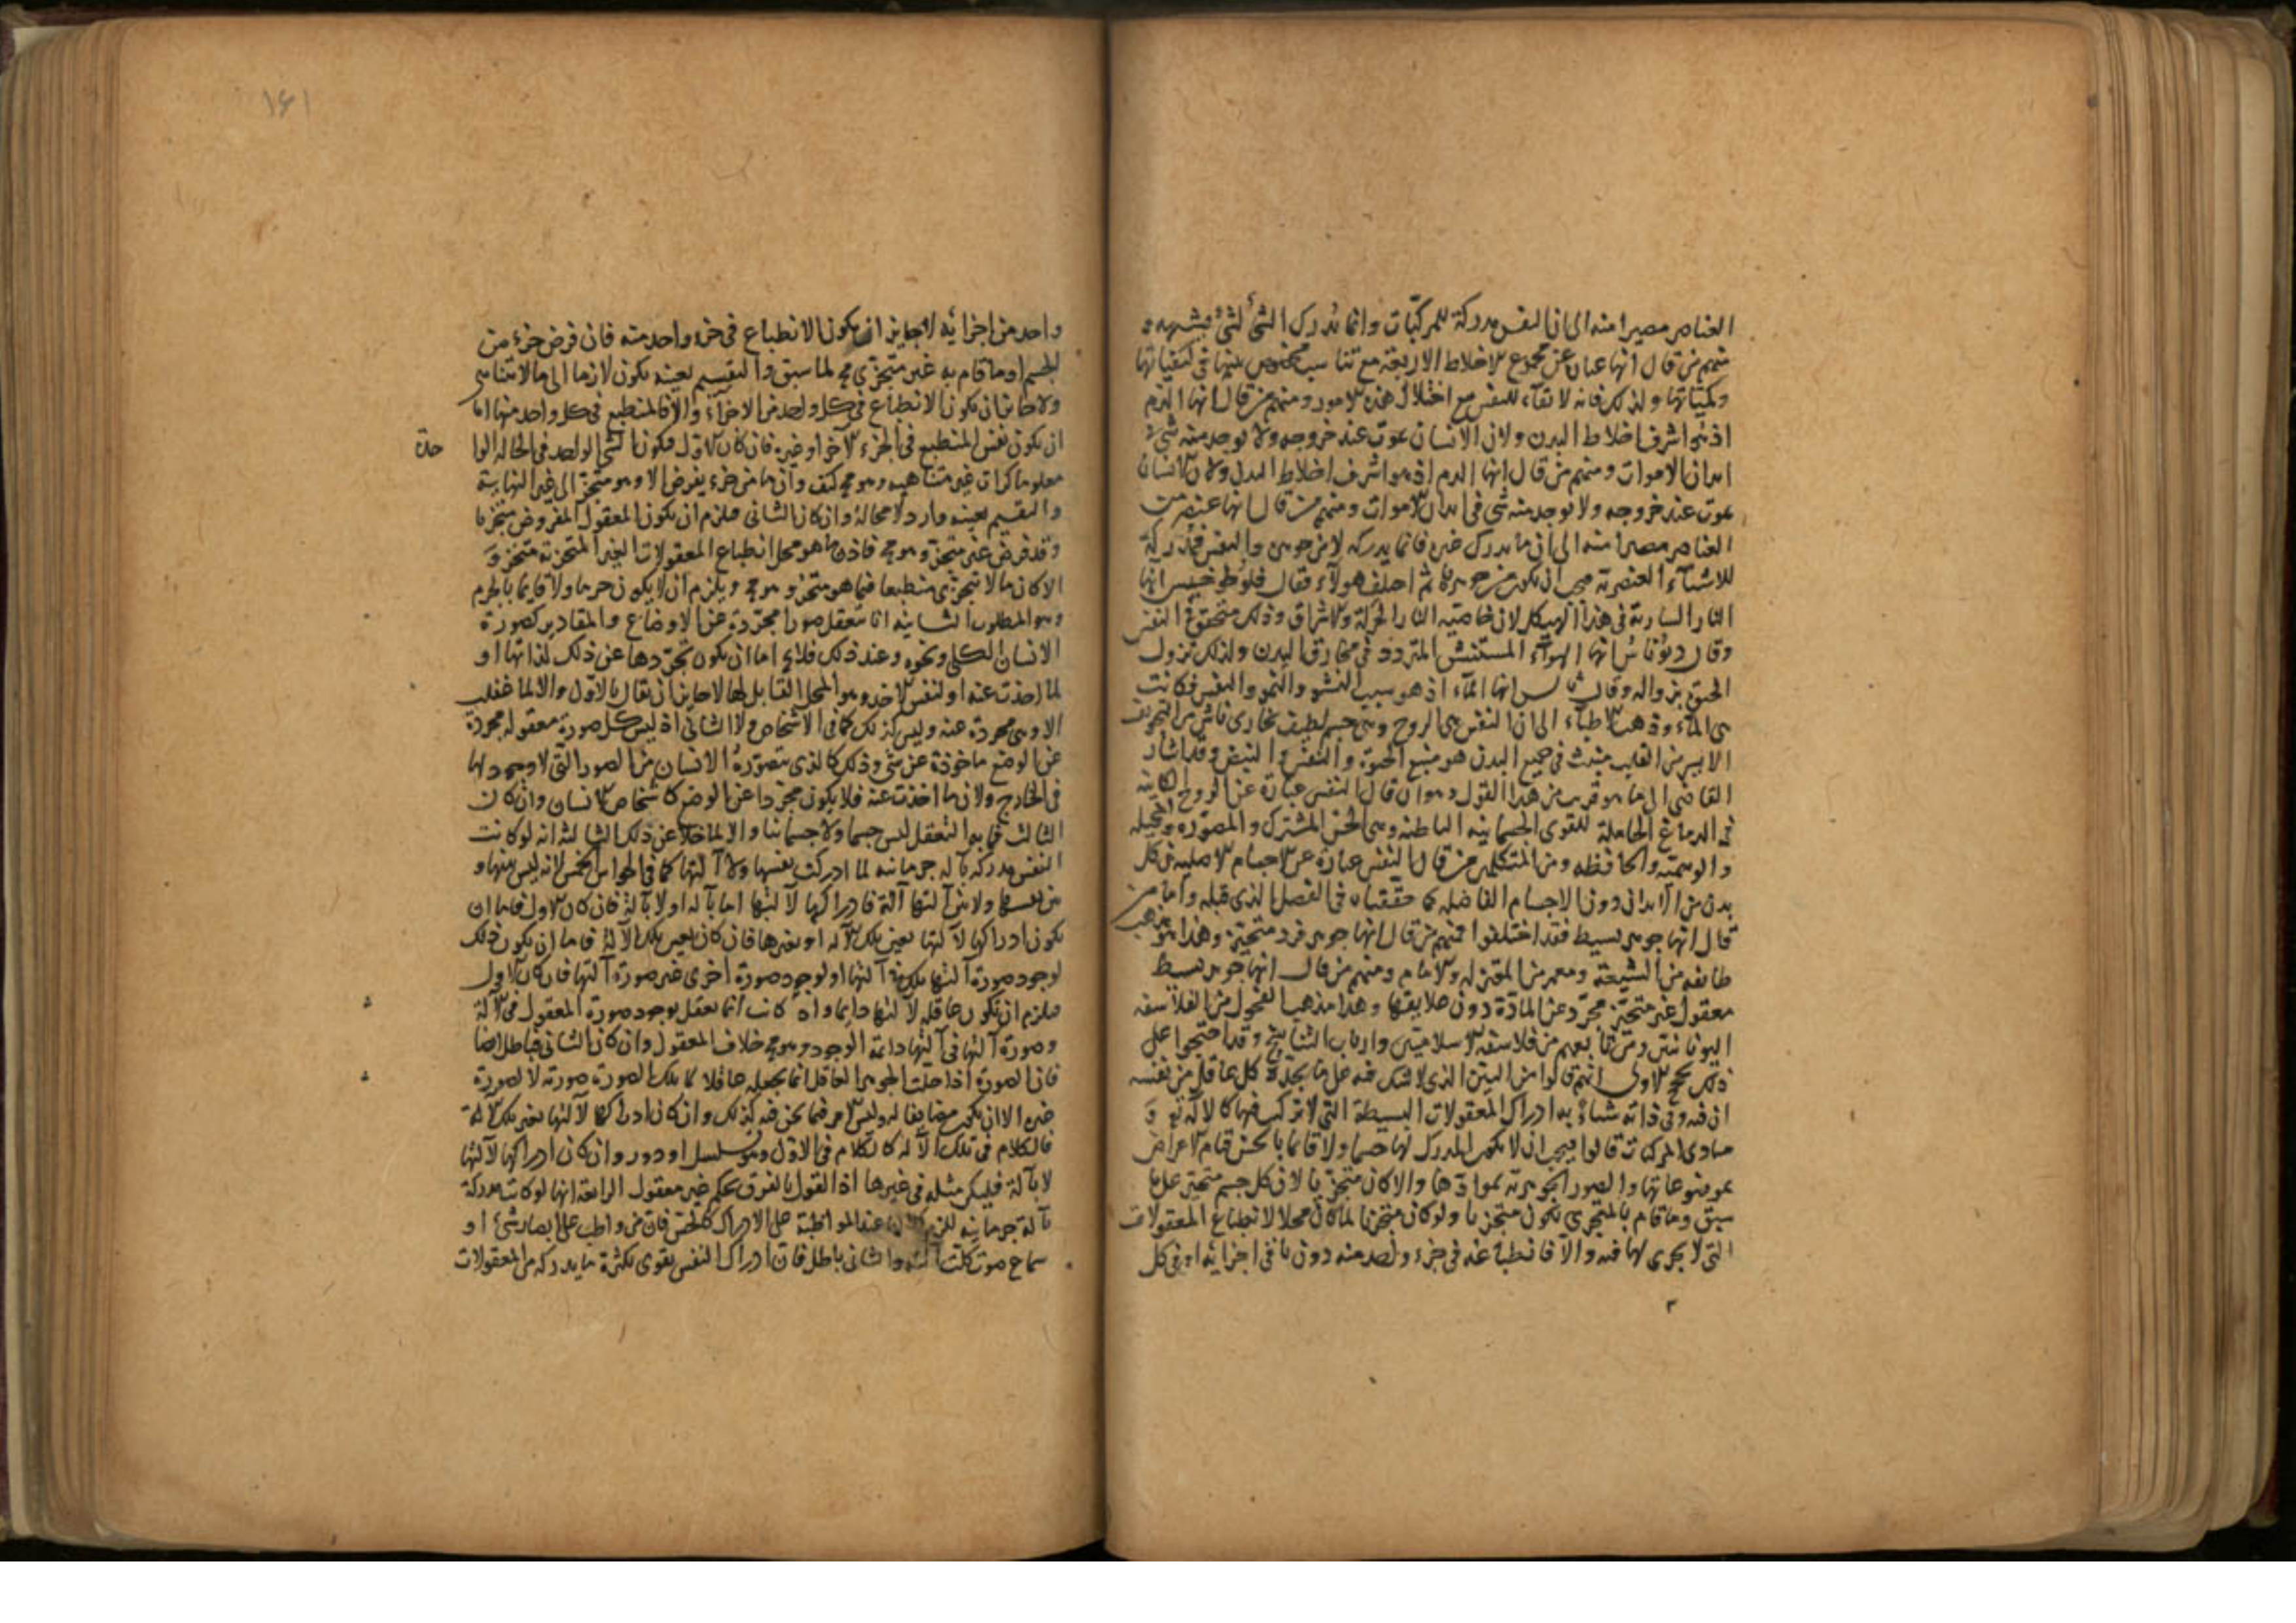 العناصر مصيرا منه الى ان النفس مدركة للمركبات وانما يدرك الشئ لشئ يشبهه و
منهم من قال انها عبارة عن مجموع الاخلاط الاربعة مع تناسب مخصوص بينها فى كيفياتها
وكمياتها ولذلك فانه لا بقاء للنفس مع اختلال هذه الامور ومنهم من قال انها الدم
اذ هو اشرف اخلاط البدن ولان الانسان يموت عند خروجه ولا يوجد منه شئ فى
ابدان الاموات ومنهم من قال انها الدم اذ هو اشرف اخلاط البدن ولان الانسان
يموت عند خروجه ولا يوجد منه شى فى ابدان الاموات ومنهم من قال انها عنصر من
العناصر مصيرا منه الى ان ما يدرك غيره فانما يدركه لانه من جوهره والنفس مدركة
للاشياء العنصرية فيجب ان يكون من جوهرها ثم اختلف هولاء فقال انها
النار السارية فى هذا الهيكل لان خاصية النار الحركة والاشراق وذلك متحقق فى النفس
وقال ديوناس انها الهواء المستنشق المتردد فى مخارق البدن ولذلك تزول
الحيوة بزواله وقال انها الماء اذ هو سبب النشو والنمو والنفس فكانت
هى الماء وذهب الاطباء الى ان النفس هى الروح وهى جسم لطيف بخارى ناشى من التجويف
الايسر من القلب منبث فى جميع البدن هو منبع الحيوة والنفس والنبض وقد اشار
القاضى الى ما هو قريب من هذا القول وهو ان قال النفس عبارة عن الروح الكاينة
فى الدماغ الحاملة للقوى الجسمانية الباطنة وهى الحس المشترك والمصورة والمخيلة
والوهمية والحافظة ومن المتكلمين من قال النفس عبارة عن الاجسام الاصلية فى كل
بدن من الابدان دون الاجسام الفاضلة كما حققناه فى الفصل الذى قبله واما من
قال انها جوهر بسيط فقد اختلفوا فمنهم من قال انها جوهر فرد متحيز وهذا هو مذهب
طائفة من الشيعة ومعمر من المعتزلة والامام ومنهم من قال انها جوهر بسيط
معقول غير متحيز مجرد عن المادة دون علايقها وهذا مذهب الفحول من الفلاسفة
اليونانيين ومن تابعهم من فلاسفة الاسلاميين وارباب التناسخ وقد احتجوا على
ذلك بحجج الاولى انهم قالوا من البين الذى لا شك فيه على ما يجده كل عاقل من نفسه
ان فيه وفى ذاته شيا به ادراك المعقولات البسيطة التى لا تركب فيها كالاله تع و
مبادى المركبات قالوا فيجب ان لا يكون المدرك لها جسما ولا قائما بالجسم قيام الاعراض
بموضوعاتها والصور الجوهرية بموادها والا كان متجزيا لان كل جسم متحيز على ما
سبق وما قام بالمتجزى يكون متجزيا ولو كان متجزيا لما كان محلا لانطباع المعقولات
التى لا تجزى لها فيه والا فانطباعه فى جزء واحد منه دون باقى اجزايه او فى كل
١٤١
واحد من اجزائه لا جايز ان يكون الانطباع فى جزء واحد منه فان فرض جزء من
الجسم او ما قام به غير متجزى مح لما سبق والتقسيم بعينه يكون لازما الى ما لا يتناهى
ولا جايز ان يكون الانطباع فى كل واحد من الاجزاء والا فالمنطبع فى كل واحد منها اما
ان يكون نفس المنطبع فى الجزء الآخر او غيره فان كان الاول فيكون الشى الواحد فى الحالة الوا حدة
معلوما كرات غير متناهية وهو مح كيف وان ما من جزء يفرض الا وهو متجز الى غير النهاية
والتقسيم بعينه وارد لا محالة وان كان الثانى فيلزم ان يكون المعقول المفروض متجزيا
وقد فرض غير متجز وهو مح فاذن ما هو محل انطباع المعقولات الغير المتجزية متجز و
الا كان ما لا يتجزى منطبعا فيما هو متجز وهو مح ويلزم ان لا يكون جرما ولا قايما بالجرم
وهو المطلوب الثانية انا نتعقل صورا مجردة عن الاوضاع والمقادير كصورة
الانسان الكلى ونحوه وعند ذلك فلا يخ اما ان يكون تجردها عن ذلك لذاتها او
لما اخذت عنه او لنفس الاخذ وهو المحل القابل لها لا جايز ان يقال بالاول والا لما عقلت
الا وهى مجردة عنه وليس كذلك كما فى الاشخاص ولا الثانى اذ ليس كل صورة معقولة مجردة
عن الوضع ماخوذة عن شى وذلك كالذى يتصوره الانسان من الصور التى لا وجود لها
فى الخارج ولان ما اخذت عنه فلا يكون مجردا عن الوضع كاشخاص الانسان وان كان
الثالث فما به التعقل ليس جسما ولا جسمانيا والا لما خلا عن ذلك الثالثة انه لو كانت
النفس مدركة بالة جرمانية لما ادركت نفسها ولا آلتها كما فى الحواس الخمس لانه ليس بينها و
بين نفسها ولا بين آلتها آلة فادراكها لآلتها اما بآلة او لا بآلة فان كان الاول فاما ان
يكون ادراكها لآلتها بعين تلك الآلة او بغيرها فان كان بعين تلك الآلة فاما ان يكون ذلك
لوجود صورة آلتها تلك فى آلتها او لوجود صورة اخرى غير صورة آلتها فان كان الاول
فيلزم ان تكون عاقلة لآلتها دايما واذ كانت انما تعقل بوجود صورة المعقول فى الآلة
وصورة آلتها فى آلتها دائمة الوجود وهو مح خلاف المعقول وان كان الثانى فباطل ايضا
فان الصورة اذا حلت الجوهر العاقل انما تجعله عاقلا لما تلك الصورة صورته لا لصورة
غيره الا ان يكون مضايفا له وليس الامر فيما نحن فيه كذلك وان كان ادراكها لآلتها بغير تلك الآلة
فالكلام فى تلك الآلة كالكلام فى الاول وهو تسلسل او دور وان كان ادراكها لآلتها
لا بآلة فليكن مثله فى غيرها اذ القول بالفرق تحكم غير معقول الرابعة انها لو كانت مدركة
بآلة جرمانية للزم عند المواظبة على الادراك كالحس فان من واظب على ابصار شئ او
سماع صوت كلت آلته والثانى باطل فان ادراك النفس يقوى بكثرة ما يدركه من المعقولات